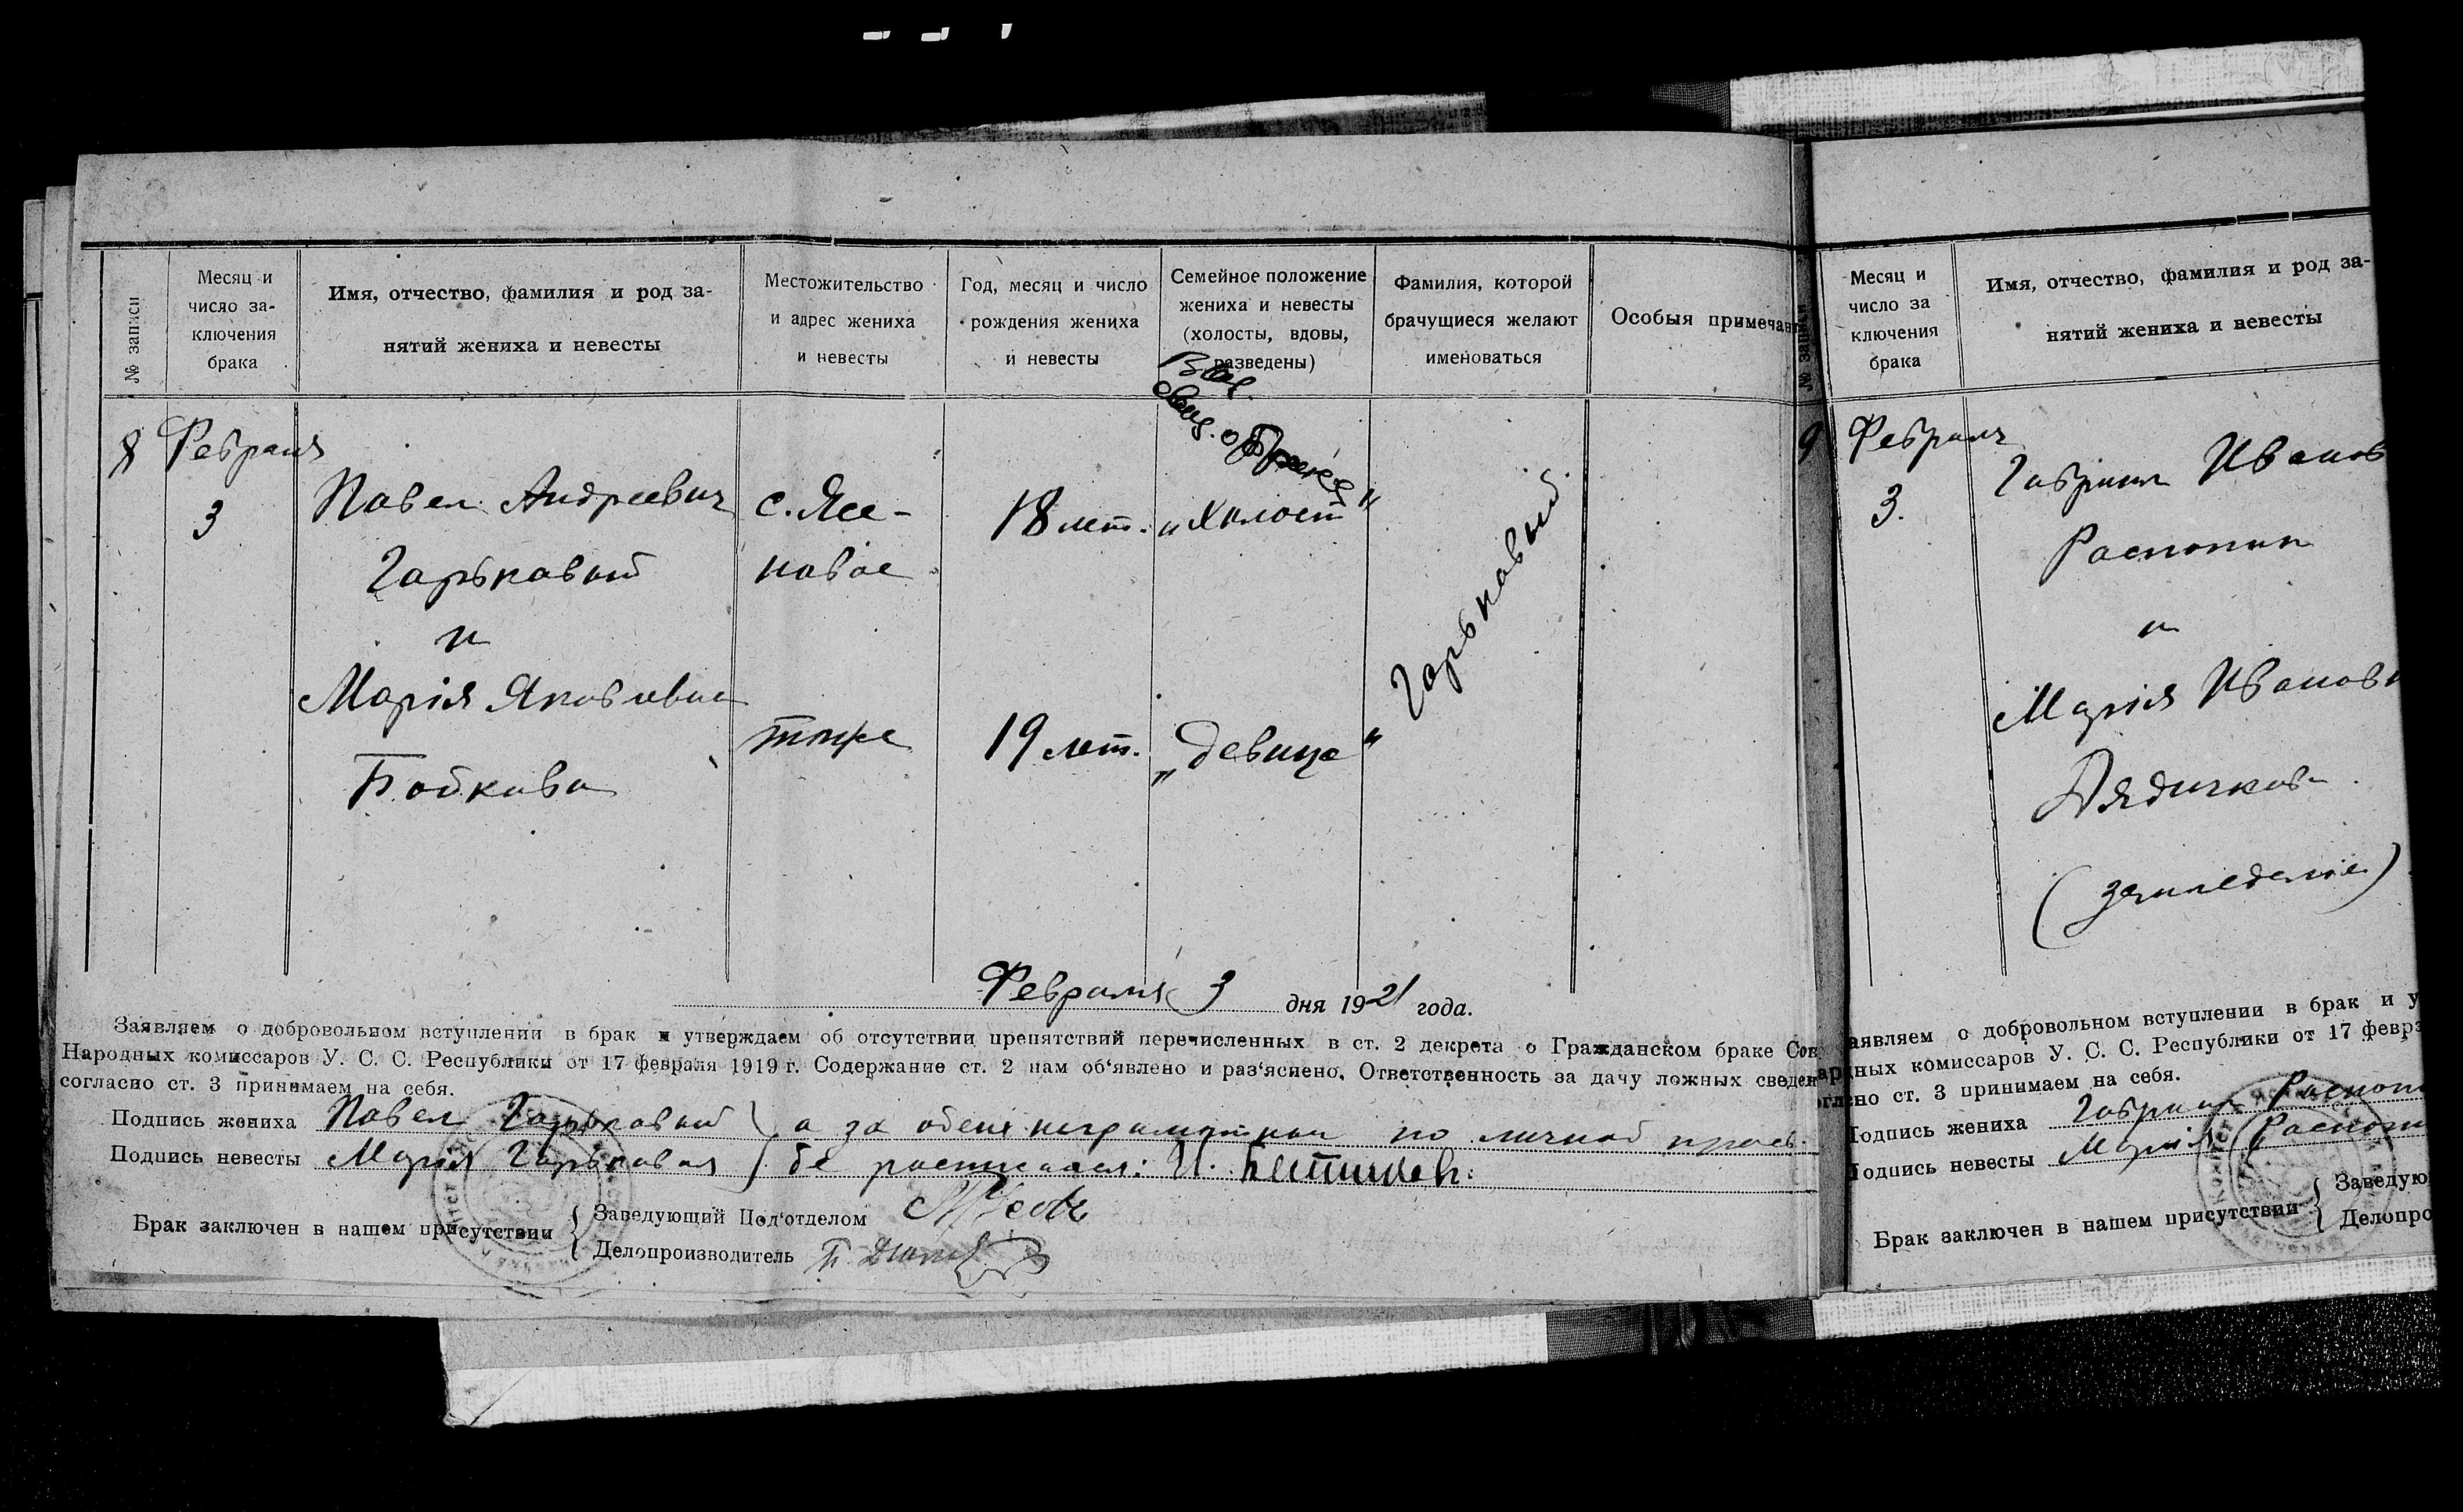 № записи
Месяц и
число за-
ключения
брака
Имя, отчество, фамилия и род за-
нятий жениха и невесты
Местожительство
и адрес жениха
и невесты
Год, месяц и число
рождения жениха
и невесты
Семейное положение
жениха и невесты
(холосты, вдовы,
разведены)
Фамилия, которой
брачущиеся желают
именоваться
Особыя примечан
8
Февраля
3
Павел Андреевич
Гарьковый
и
Марія Яковлевна
Бойкова
с. Ясе-
новое
тоже
18 лет.
19 лет.
Выд.
свид. о браке
„Холост"
„девица"
Гарьковый
Февраля 3 дня 1921 года.
Заявляем о добровольном вступлении в брак и утверждаем об отсутствии препятствий перечисленных в ст. 2 декрета о Гражданском браке Сов
Народных комиссаров У. С. С. Республики от 17 февраля 1919 г. Содержание ст. 2 нам об'явлено и раз'яснено. Ответственность за дачу ложных сведен
согласно ст. 3 принимаем на себя.
Подпись жениха Павел Гарьковый } а за обеих неграмотных по личной прось-
Подпись невесты Мария Гарьковая } бе расписался: И.
Брак заключен в нашем присутствии { Заведующий Под'отделом
Делопроизводитель П.
№ записи
Месяц и
число за
ключения
брака
Имя, отчество, фамилия и род за-
нятий жениха и невесты
9
Февраля
3.
Гавриил Иванов
Распопин
и
Марія Ивановн
Дядичкова
(земледелие)
аявляем о добровольном вступлении в брак и у
ародных комиссаров У. С. С. Республики от 17 февра
огласно ст. 3 принимаем на себя.
Подпись жениха Гавриил Распоп
Подпись невесты Марія Распопи
Брак заключен в нашем присутствии { Заведую
Делопро